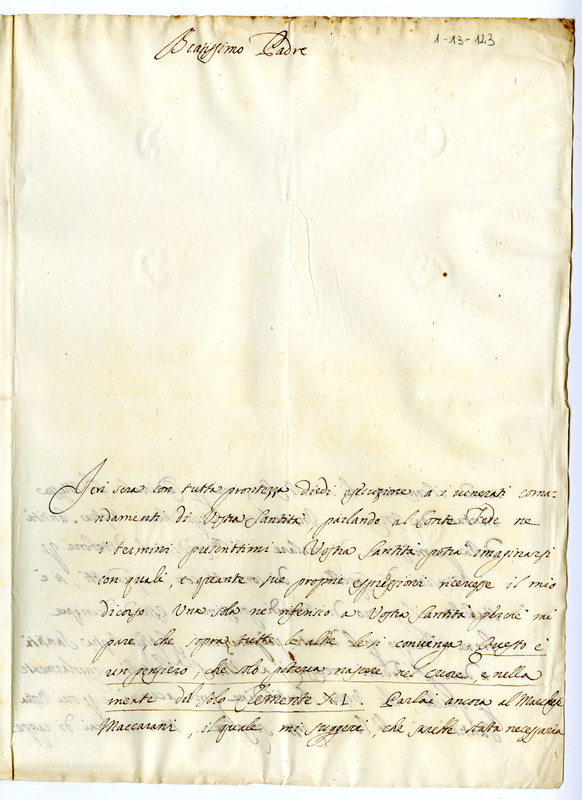 Beatissimo Padre
1-13-123
Jeri sera con tutta prontezza diedi esecuzione a i venerati coma-
ndamenti di Vostra Santità, parlando al Conte Fede ne
i termini prescrittimi. Vostra Santità potrà imaginarsi
con quali, e quante sue proprie espressioni ricevesse il mio
dicorso. Una sola ne riferisco a Vostra Santità perche mi
pare, che sopra tutte le altre le si convenga. Questo è
un pensiero, che solo poteva nascere nel cuore, e nella
mente del solo Clemente XI. Parlai ancora al Marchese
Maccarani, il quale mi suggerì, che sarebbe stata necessaria